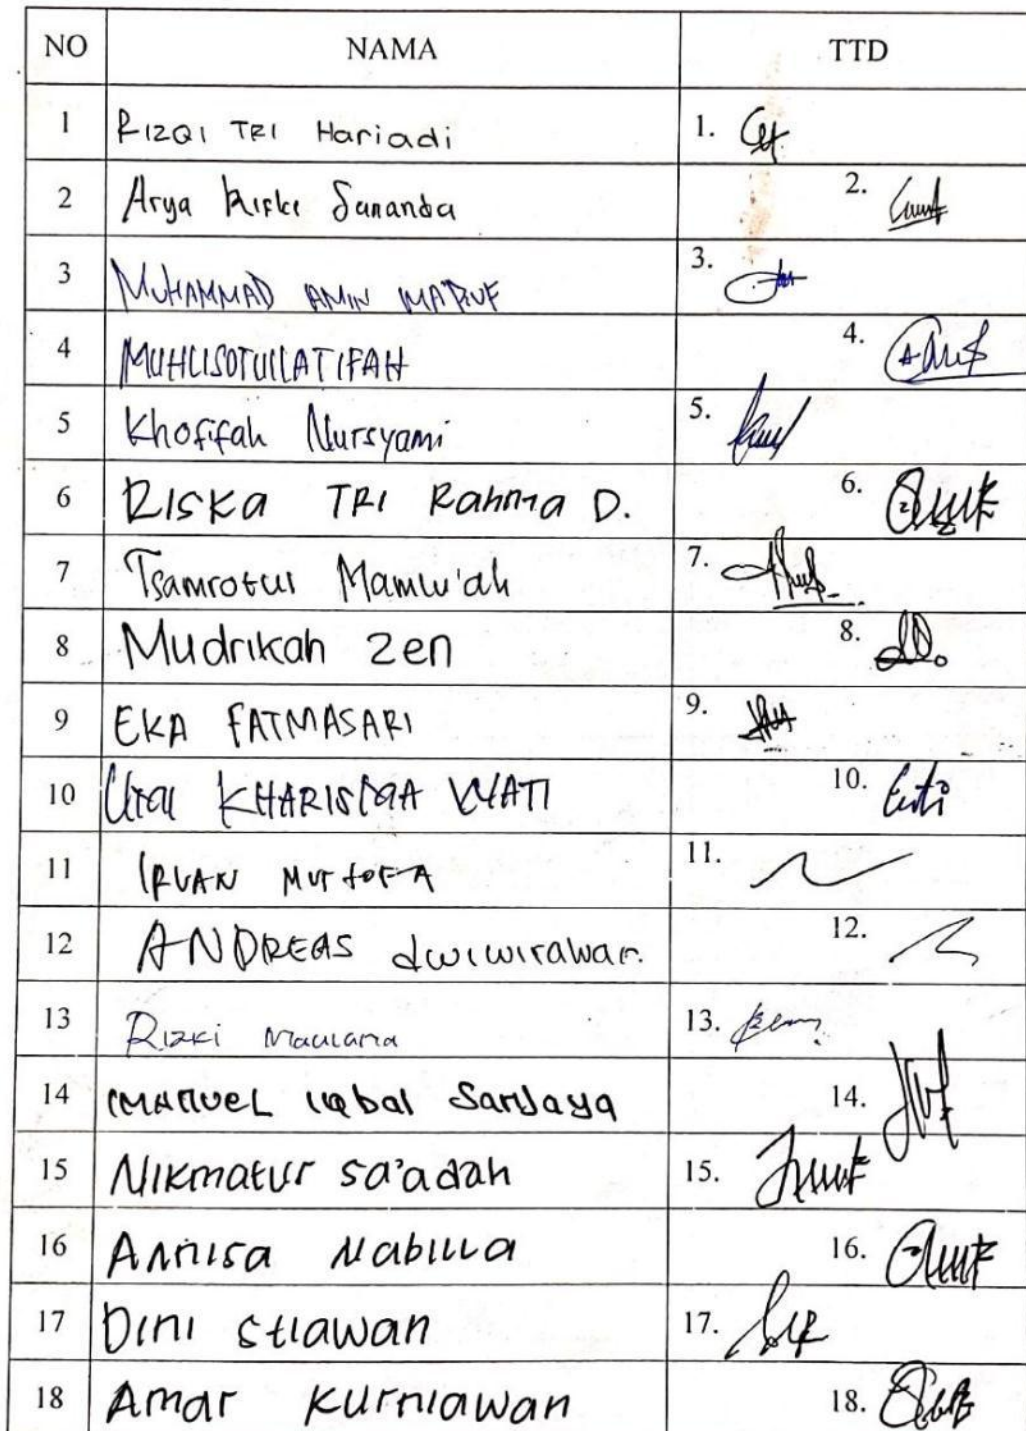 NO NAMA TTD
1 RIZQI TRI Hariadi 1.
2 Arya Rizki Sananda 2.
3 MUHAMMAD AMIN MA'RUF 3.
4 MUHLISOTULLATIFAH 4.
5 Khofifah Nursyami 5.
6 RISKA TRI Rahma D. 6.
7 Tsamrotul Mamlu'ah 7.
8 Mudrikah Zen 8.
9 EKA FATMASARI 9.
10 KHARISMA WATI 10.
11 IRVAN MUSTOFA 11.
12 ANDREAS dwiwirawan. 12.
13 Rizki Maulana 13.
14 IMANUEL iqbal Sanjaya 14.
15 Nikmatur sa'adah 15.
16 Annisa Nabilla 16.
17 Dini Stiawan 17.
18 Amar Kurniawan 18.